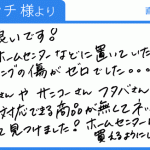 ッチ 様より
良いです!
ホームセンターなどに置いていた
ングの傷がゼロでした・・・
さんや サンコーさん フタバさん
対応できる商品が無くてネッ
て見つけました? ホームセンターに
買えるようにし